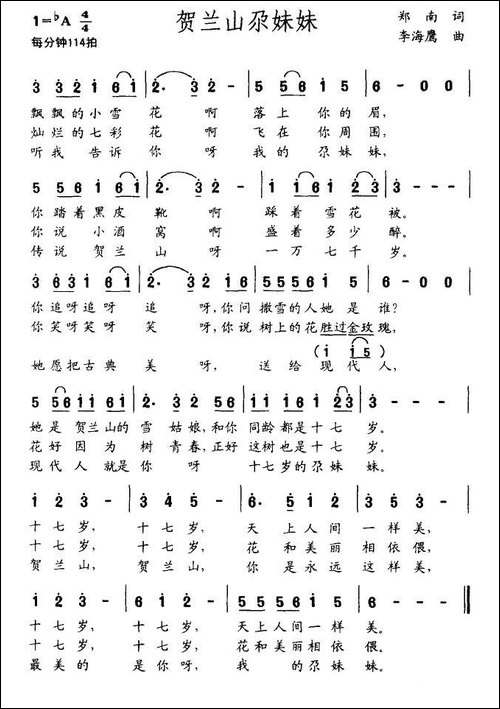 贺兰山尕妹妹
1=♭A 4/4
郑南 词
每分钟114拍
李海鹰 曲
3 3 2 1 6 1 | 2· 3 2 - | 5 5 3 2 1 | 6 - 0 0 |
飘飘的小雪 花 啊 落上 你的 眉,
灿烂的七彩 花 啊 飞在 你周 围;
听我 告诉 你 呀 我的 尕妹 妹,
你踏着黑皮 靴 啊 踩着 雪花 被。
你说 小酒 窝 啊 盛着 多少 醉。
传说 贺兰 山 呀 一万 七千 岁。
你追呀追呀 追 呀,你问 撒雪的人她 是 谁?
你笑呀笑呀 笑 呀,你说 树上的花胜过金玫 瑰,
(i i 5)
她愿把古典 美 呀, 送给 现代 人,
她是 贺兰山的 雪 姑娘,和你 同龄 都是十七 岁。
花好 因为 树 青春,正好 这树也是十七 岁。
现代 人 就是你 呀 十七岁的尕妹 妹。
1 2 3 - | 3 4 5 - | 6· 5 1 2 | 3 5 2 - |
十七岁, 十七岁, 天上人间 一样美,
十七岁, 十七岁, 花和美丽 相依偎,
贺兰山, 贺兰山, 你是永远 这样美,
十七岁, 十七岁, 天上人间一样 美。
十七岁, 十七岁, 花和美丽相依 偎。
最美的 是你呀 我的 尕妹 妹。